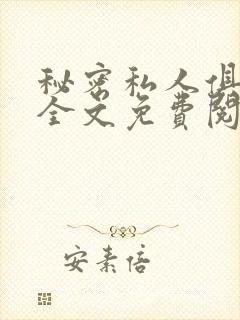 秘密私人俱
全文免费阅
安素倍